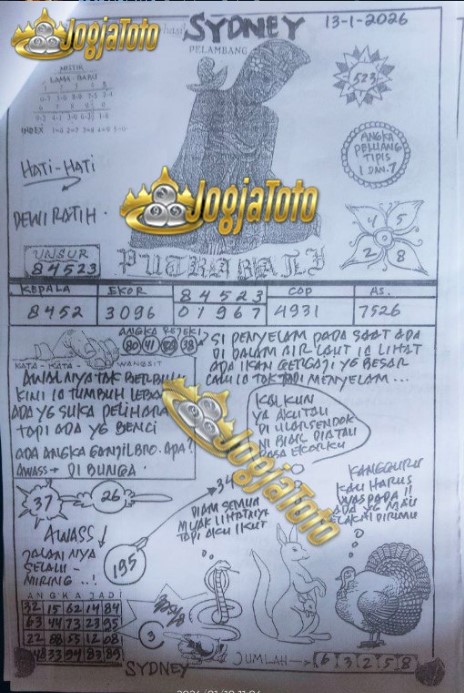 JogjaToto
SYDNEY
13-1-2026
PELAMBANG
MISTIK
LAMA - BARU
523
ANGKA
PELUANG
TIPIS
1 DAN 7
HATI-HATI
DEWI RATIH
JogjaToto
4 5
2 8
UNSUR
84523
PUTRA BALI
KEPALA EKOR 84523 COP AS.
8452 3096 01967 4931 7526
ANGKA REJEKI
80 41 38
KATA - KATA WANGSIT
AWALNYA TAK BERBULU
KINI IA TUMBUH LEBAT
ADA YG SUKA PELIHARA
TAPI ADA YG BENCI
ADA ANGKA GANJIL BRO. APA?
AWASS → DI BUNGA.
SI PENYELAM PADA SAAT ADA
DI DALAM AIR LAUT IA LIHAT
ADA IKAN GERGAJI YG BESAR
LALU IA TOK JADI MENYELAM...
KALKUN
YA AKU TAU
DI ULAR SENDOK
NI BIAR DIA TAU
RASA EKORKU
JogjaToto
KANGGURU
KAU HARUS
WASPADA !!
ADA YG MAU
37
26
34
DIAM SEMUA
MUAK LIHATNYA
TAPI AKU IKUT
AWASS ↓
JALANNYA
SELALU -
MIRING ..!
195
ANGKA JADI
32 15 62 14 84
63 44 73 23 95
22 88 55 12 08
48 33 94 83 89
3
SYDNEY
JUMLAH → 6 3 2 5 8